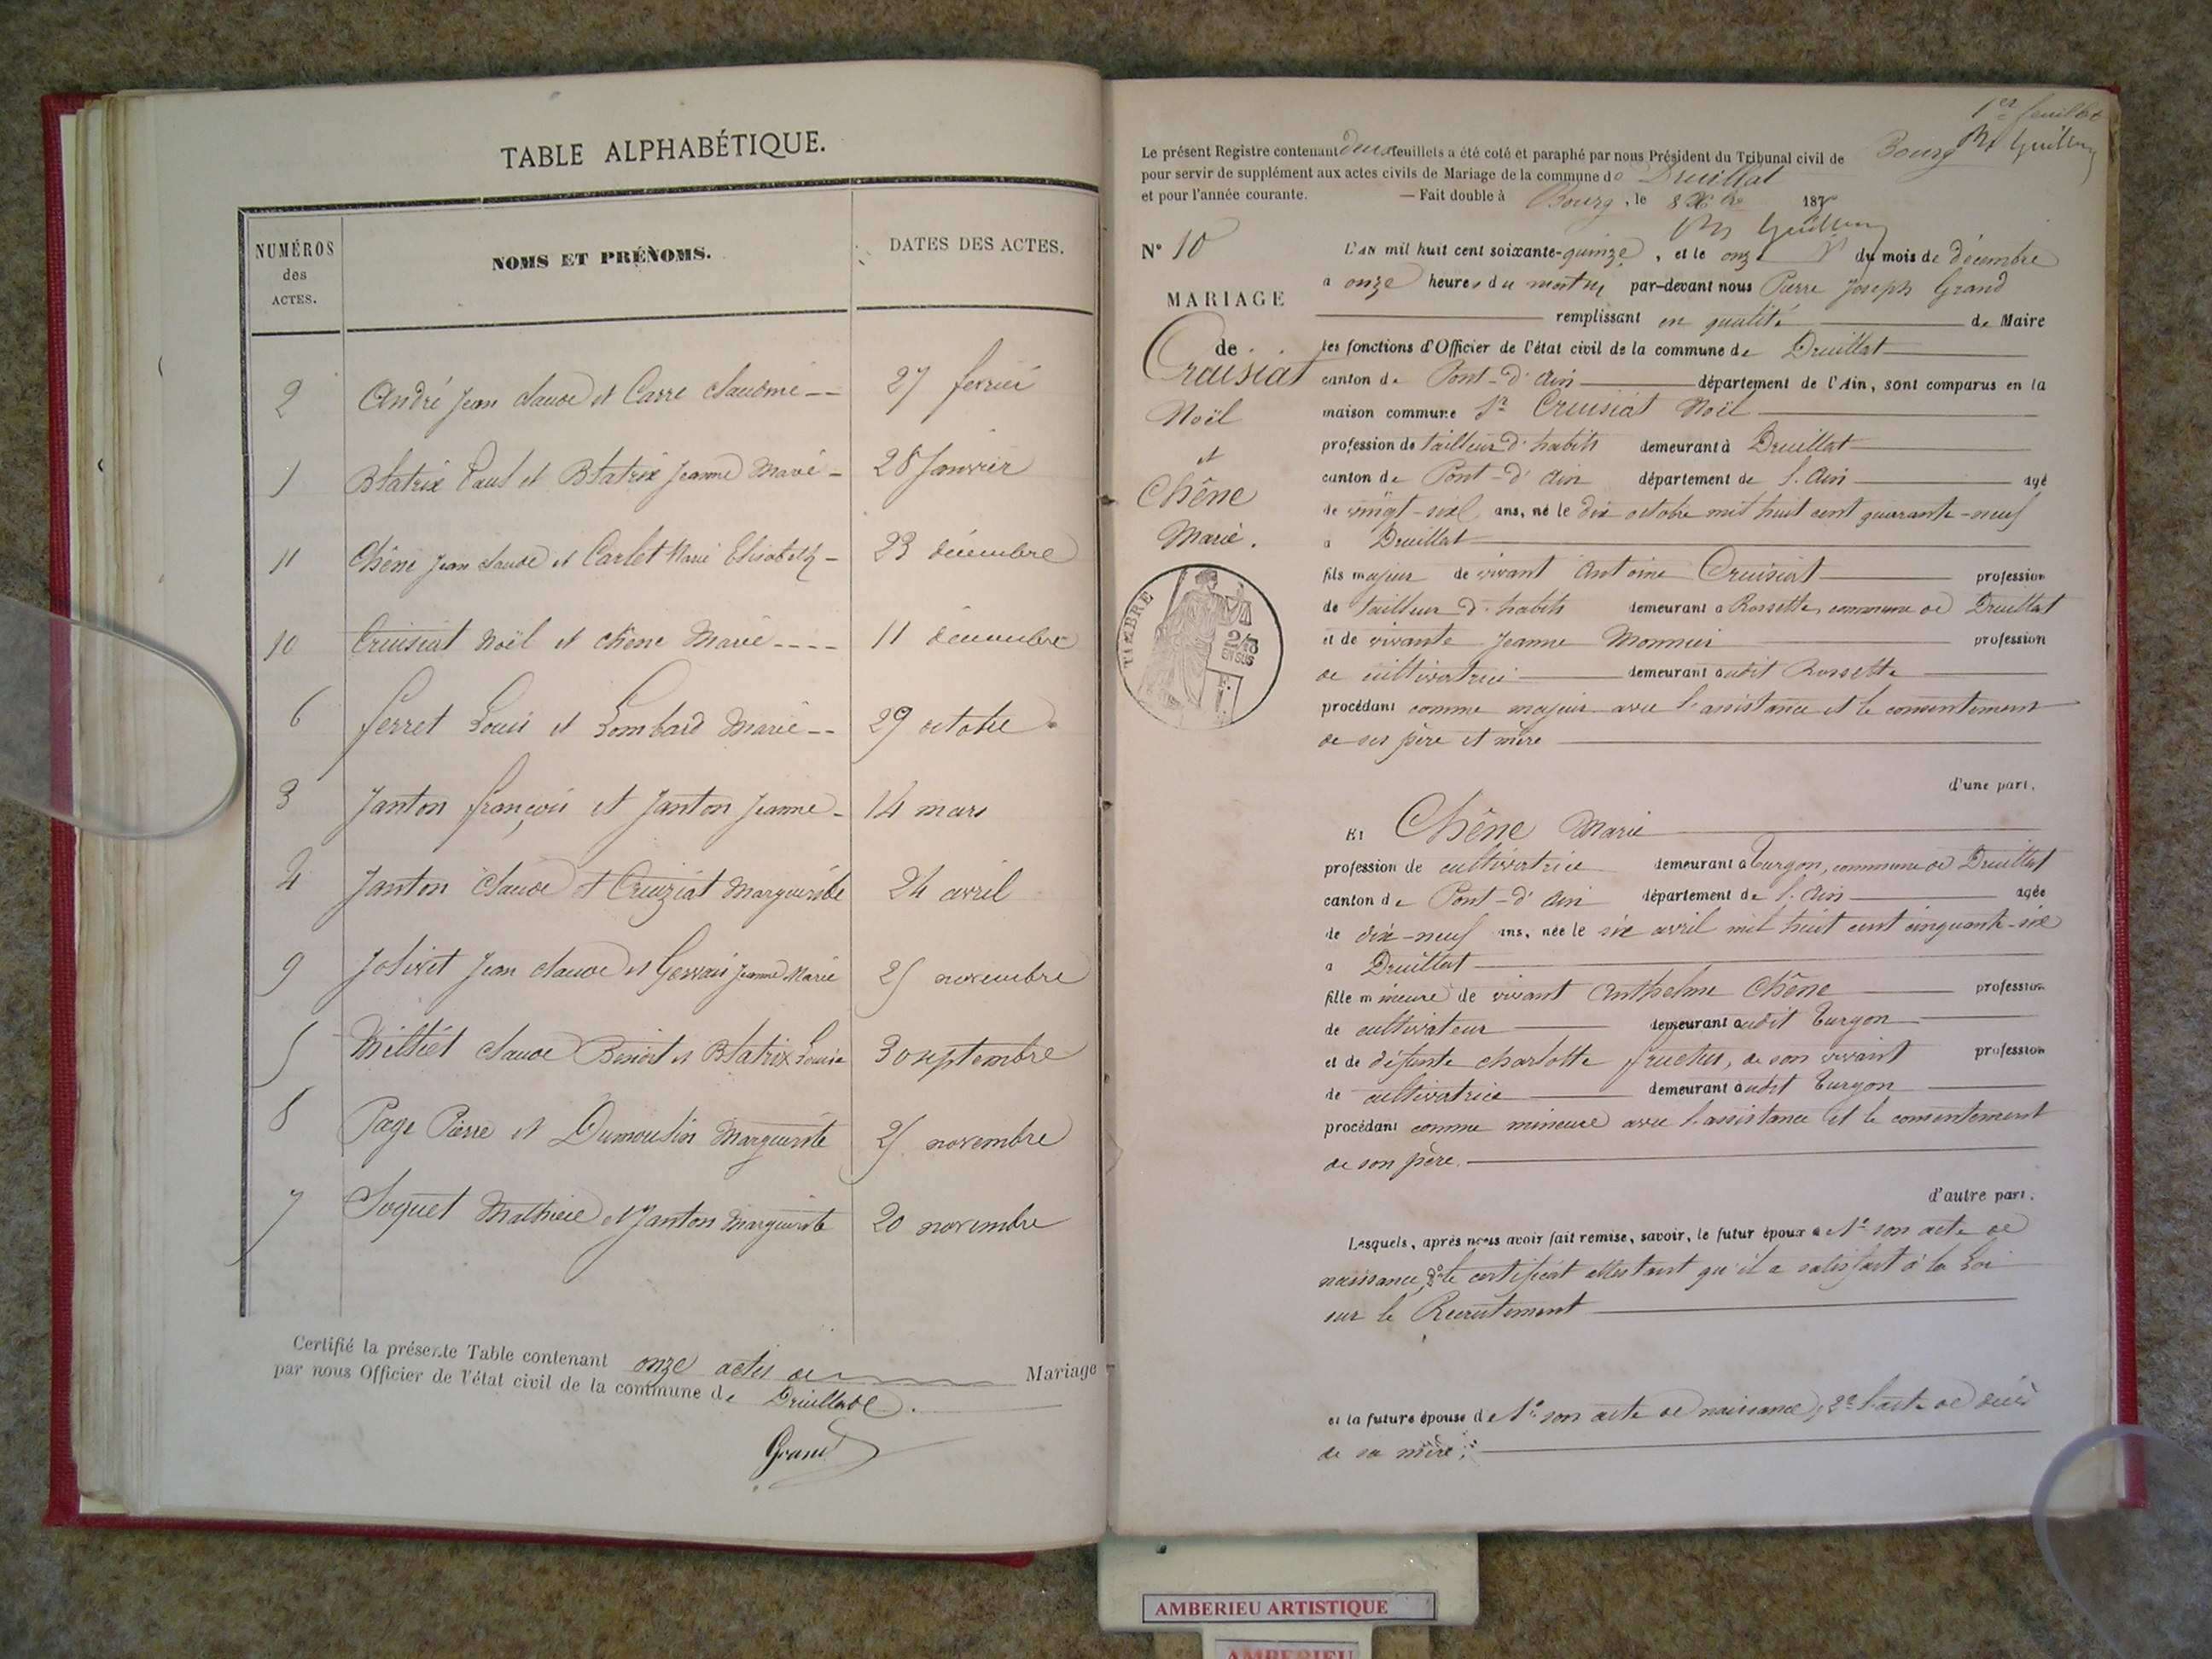 TABLE ALPHABÉTIQUE.
NUMÉROS des ACTES.
NOMS ET PRÉNOMS.
DATES DES ACTES.
2 André Jean Claude et Carre Claudine -- 27 fevrier
1 Blatrix Paul et Blatrix Jeanne Marie - 28 Janvier
11 Chêne Jean Claude et Carlet Marie Elisabeth - 23 décembre
10 Cruisiat Noël et Chêne Marie ---- 11 décembre
6 Ferret Louis et Lombard Marie -- 29 octobre
3 Janton François et Janton Jeanne - 14 mars
4 Janton Claude et Cruiziat Marguerite 24 avril
9 Jolivet Jean Claude et Gervais Jeanne Marie 25 novembre
5 Milliet Claude Benoit et Blatrix Louise 30 septembre
8 Page Pierre et Dumoulin Marguerite 25 novembre
7 Soquet Mathieu et Janton Marguerite 20 novembre
Certifié la présente Table contenant onze actes de Mariage
par nous Officier de l'état civil de la commune de Druillat.
Grand
1er feuillet
Le présent Registre contenant deux feuillets a été coté et paraphé par nous Président du Tribunal civil de Bourg
pour servir de supplément aux actes civils de Mariage de la commune de Druillat
et pour l'année courante. — Fait double à Bourg, le 8 Xbre 1875
N° 10
MARIAGE
de
Cruisiat
Noël
et
Chêne
Marie.
TIMBRE
2/10
EN SUS
L'AN mil huit cent soixante-quinze, et le onze du mois de décembre
a onze heures du matin par-devant nous Pierre Joseph Grand
remplissant en qualité de Maire
les fonctions d'Officier de l'état civil de la commune de Druillat
canton de Pont-d'Ain département de l'Ain, sont comparus en la
maison commune Sr Cruisiat Noël
profession de tailleur d'habits demeurant à Druillat
canton de Pont-d'Ain département de l'Ain agé
de vingt-six ans, né le dix octobre mil huit cent quarante-neuf
a Druillat
fils majeur de vivant Antoine Cruisiat profession
de tailleur d'habits demeurant a Rossette, commune de Druillat
et de vivante Jeanne Monnier profession
de cultivatrice demeurant audit Rossette
procédant comme majeur avec l'assistance et le consentement
de ses père et mère
d'une part.
Et Chêne Marie
profession de cultivatrice demeurant a Turgon, commune de Druillat
canton de Pont-d'Ain département de l'Ain agée
de dix-neuf ans, née le six avril mil huit cent cinquante-six
a Druillat
fille mineure de vivant Anthelme Chêne profession
de cultivateur demeurant audit Turgon
et de défunte Charlotte Fructus, de son vivant profession
de cultivatrice demeurant audit Turgon
procédant comme mineure avec l'assistance et le consentement
de son père.
d'autre part.
Lesquels, après nous avoir fait remise, savoir, le futur époux de 1° son acte de
naissance, 2° le certificat attestant qu'il a satisfait à la Loi
sur le Recrutement
et la future épouse de 1° son acte de naissance, 2° l'acte de décès
de sa mère;
AMBERIEU ARTISTIQUE
AMBERIEU